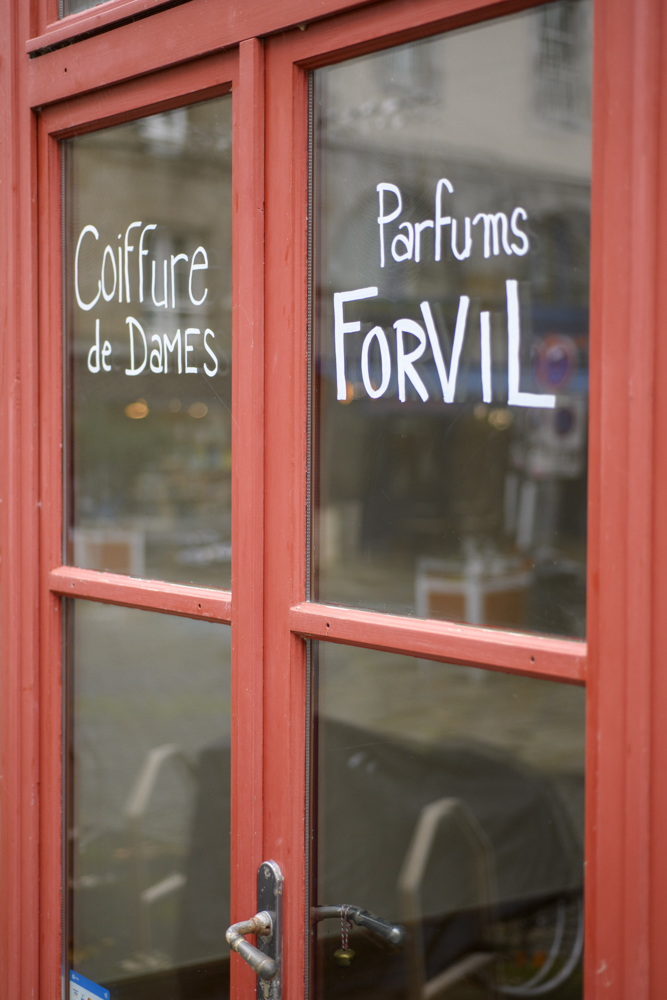 Coiffure
de DAMES
Parfums
FORVIL